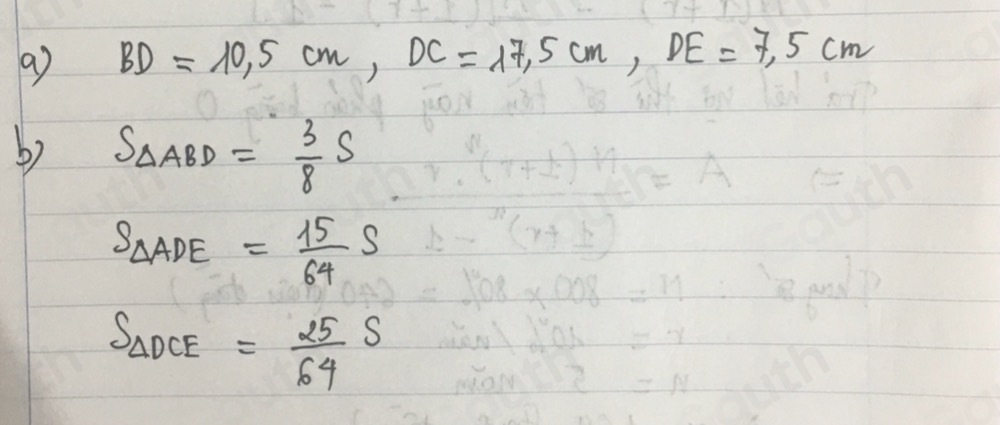 a) BD = 10,5 cm, DC = 17,5 cm, DE = 7,5 cm
b) SΔABD = 3/8 S
SΔADE = 15/64 S
SΔDCE = 25/64 S